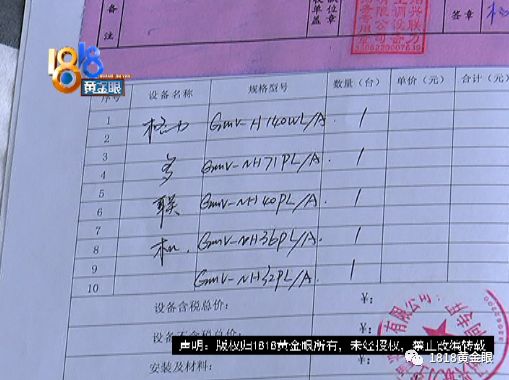 备
注
收
单
盖
签章
1818
黄金眼
序号 设备名称 规格型号 数量（台） 单价（元） 合计（元）
1
2 格力 GMV-H140WL/A. 1
3
4 多 GMV-NH71PL/A. 1
5
6 联 GMV-NH40PL/A. 1
7
8 机. GMV-NH36PL/A. 1
9
10 GMV-NH32PL/A. 1
设备含税总价： ¥：
¥：
安装及材料： ¥：
有限公司
声明：版权归1818黄金眼所有，未经授权，禁止改编转载
1818黄金眼